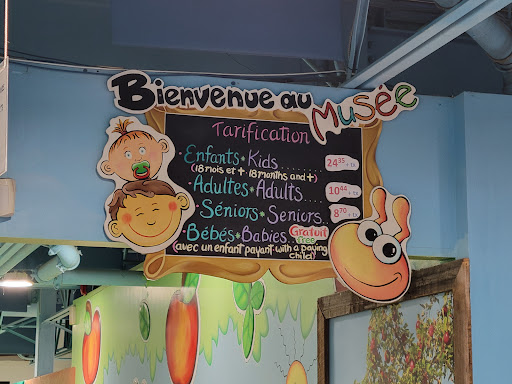 Bienvenue au Musée
Tarification
• Enfants • Kids........ 24³⁵ + tx
(18 mois et + • 18 months and +)
• Adultes • Adults...... 10⁴⁴ + tx
• Séniors • Seniors.. 8⁷⁰ + tx
• Bébés • Babies.. Gratuit
FREE
(avec un enfant payant • with a paying
child)